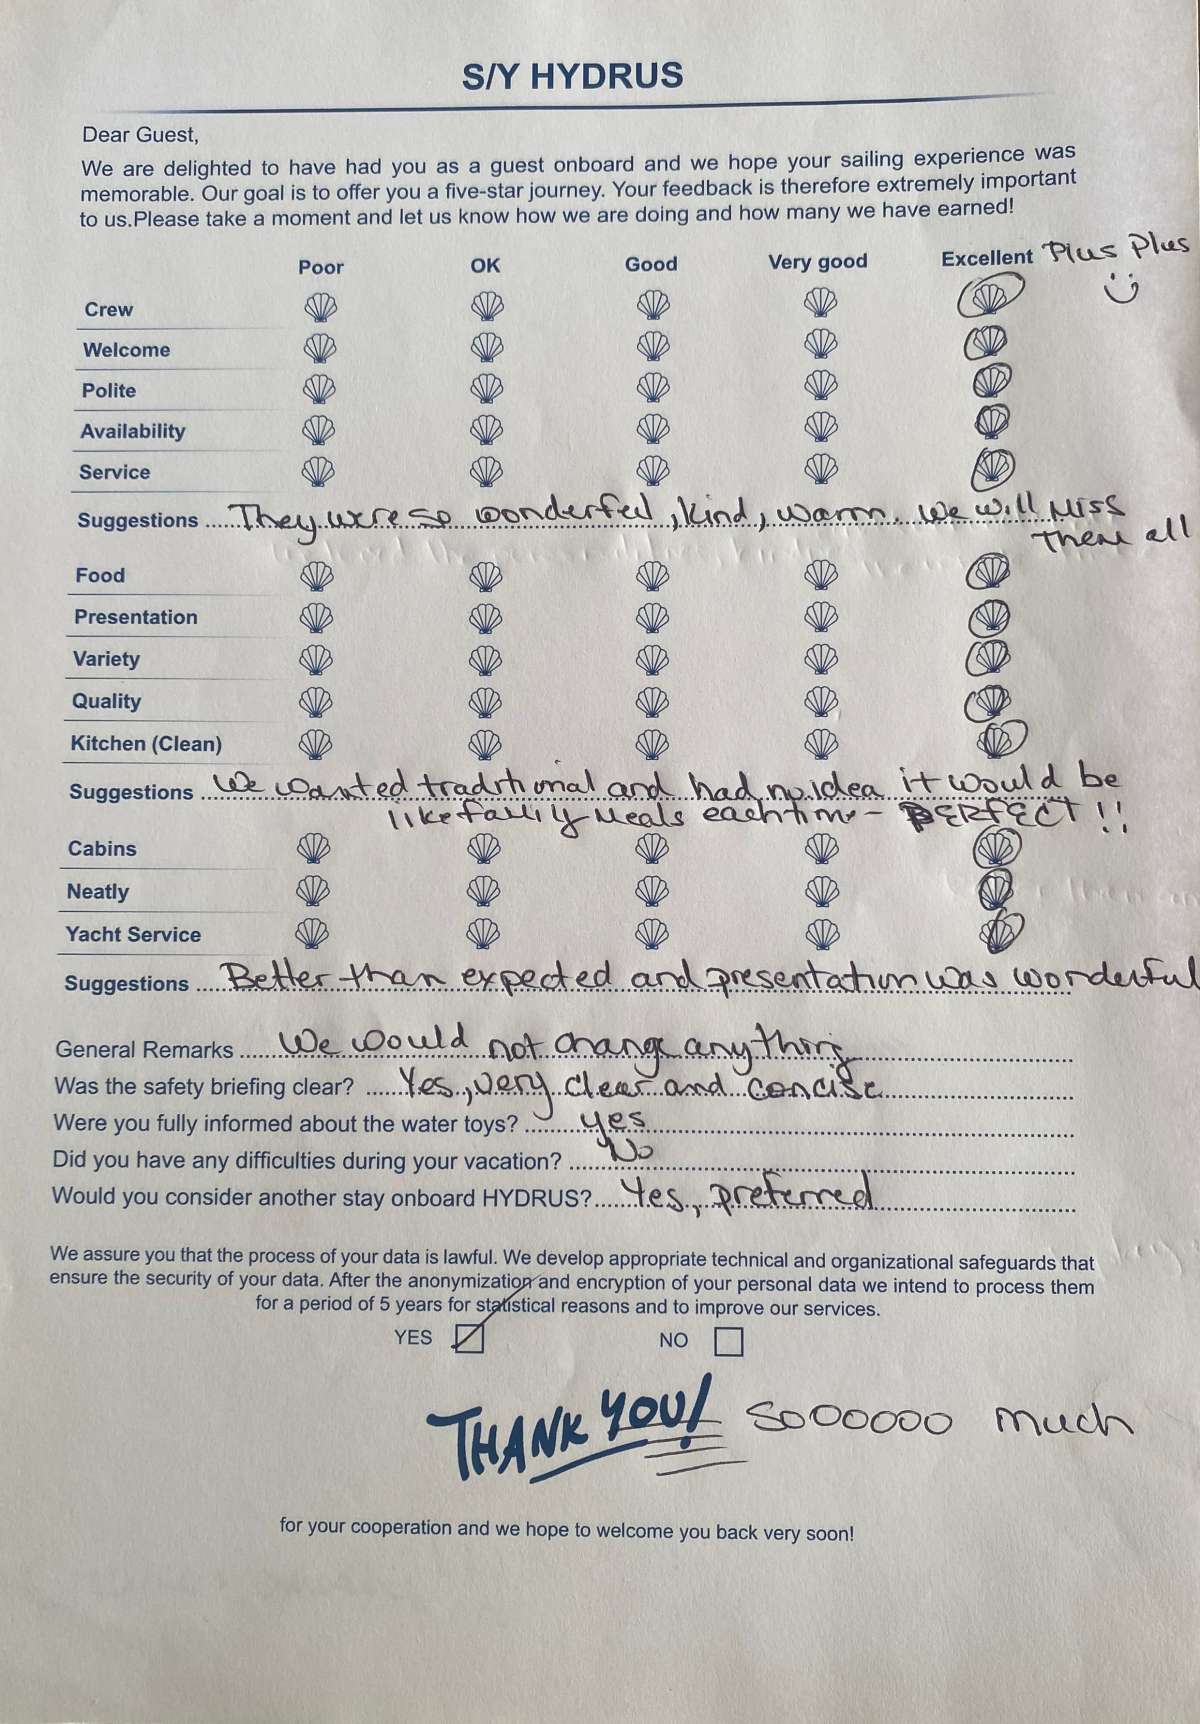 S/Y HYDRUS
Dear Guest,
We are delighted to have had you as a guest onboard and we hope your sailing experience was
memorable. Our goal is to offer you a five-star journey. Your feedback is therefore extremely important
to us.Please take a moment and let us know how we are doing and how many we have earned!
Poor OK Good Very good Excellent Plus Plus
Crew
Welcome
Polite
Availability
Service
Suggestions They were so wonderful, kind, warm. We will Miss
them all
Food
Presentation
Variety
Quality
Kitchen (Clean)
Suggestions We wanted traditional and had no idea it would be
like family meals each time - PERFECT!!
Cabins
Neatly
Yacht Service
Suggestions Better than expected and presentation was wonderful
General Remarks We would not change anything
Was the safety briefing clear? Yes, very clear and concise
Were you fully informed about the water toys? yes
Did you have any difficulties during your vacation? No
Would you consider another stay onboard HYDRUS? Yes, preferred
We assure you that the process of your data is lawful. We develop appropriate technical and organizational safeguards that
ensure the security of your data. After the anonymization and encryption of your personal data we intend to process them
for a period of 5 years for statistical reasons and to improve our services.
YES NO
THANK YOU! soooooo much
for your cooperation and we hope to welcome you back very soon!